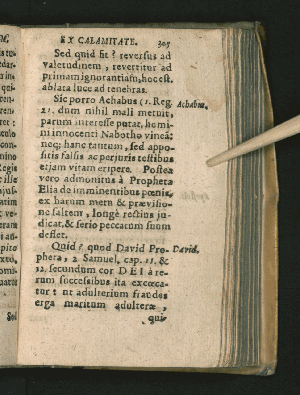 EX CALAMITATE. 305
Sed quid fit? reversus ad
valetudinem, revertitur ad
primam ignorantiam, hoc est,
ablata luce ad tenebras.
Sic porro Achabus (1. Reg. Achabus.
21. dum nihil mali metuit,
parum interesse putat, homi-
ni innocenti Nabotho vineã:
neq; hanc tantum, sed appo-
sitis falsis ac perjuris testibus
etjam vitam eripere. Postea
vero admonitus à Propheta
Elia de imminentibus pœnis,
ex harum metu & prævisio-
ne saltem, longè rectius ju-
dicat, & serio peccatum suum
deflet.
Quid? quod David Pro- David.
pheta, 2. Samuel. cap. 11. &
12. secundum cor DEI à re-
rum successibus ita excœca-
tur: ut adulterium fraudes
erga maritum adulteræ,
qui-
Sed